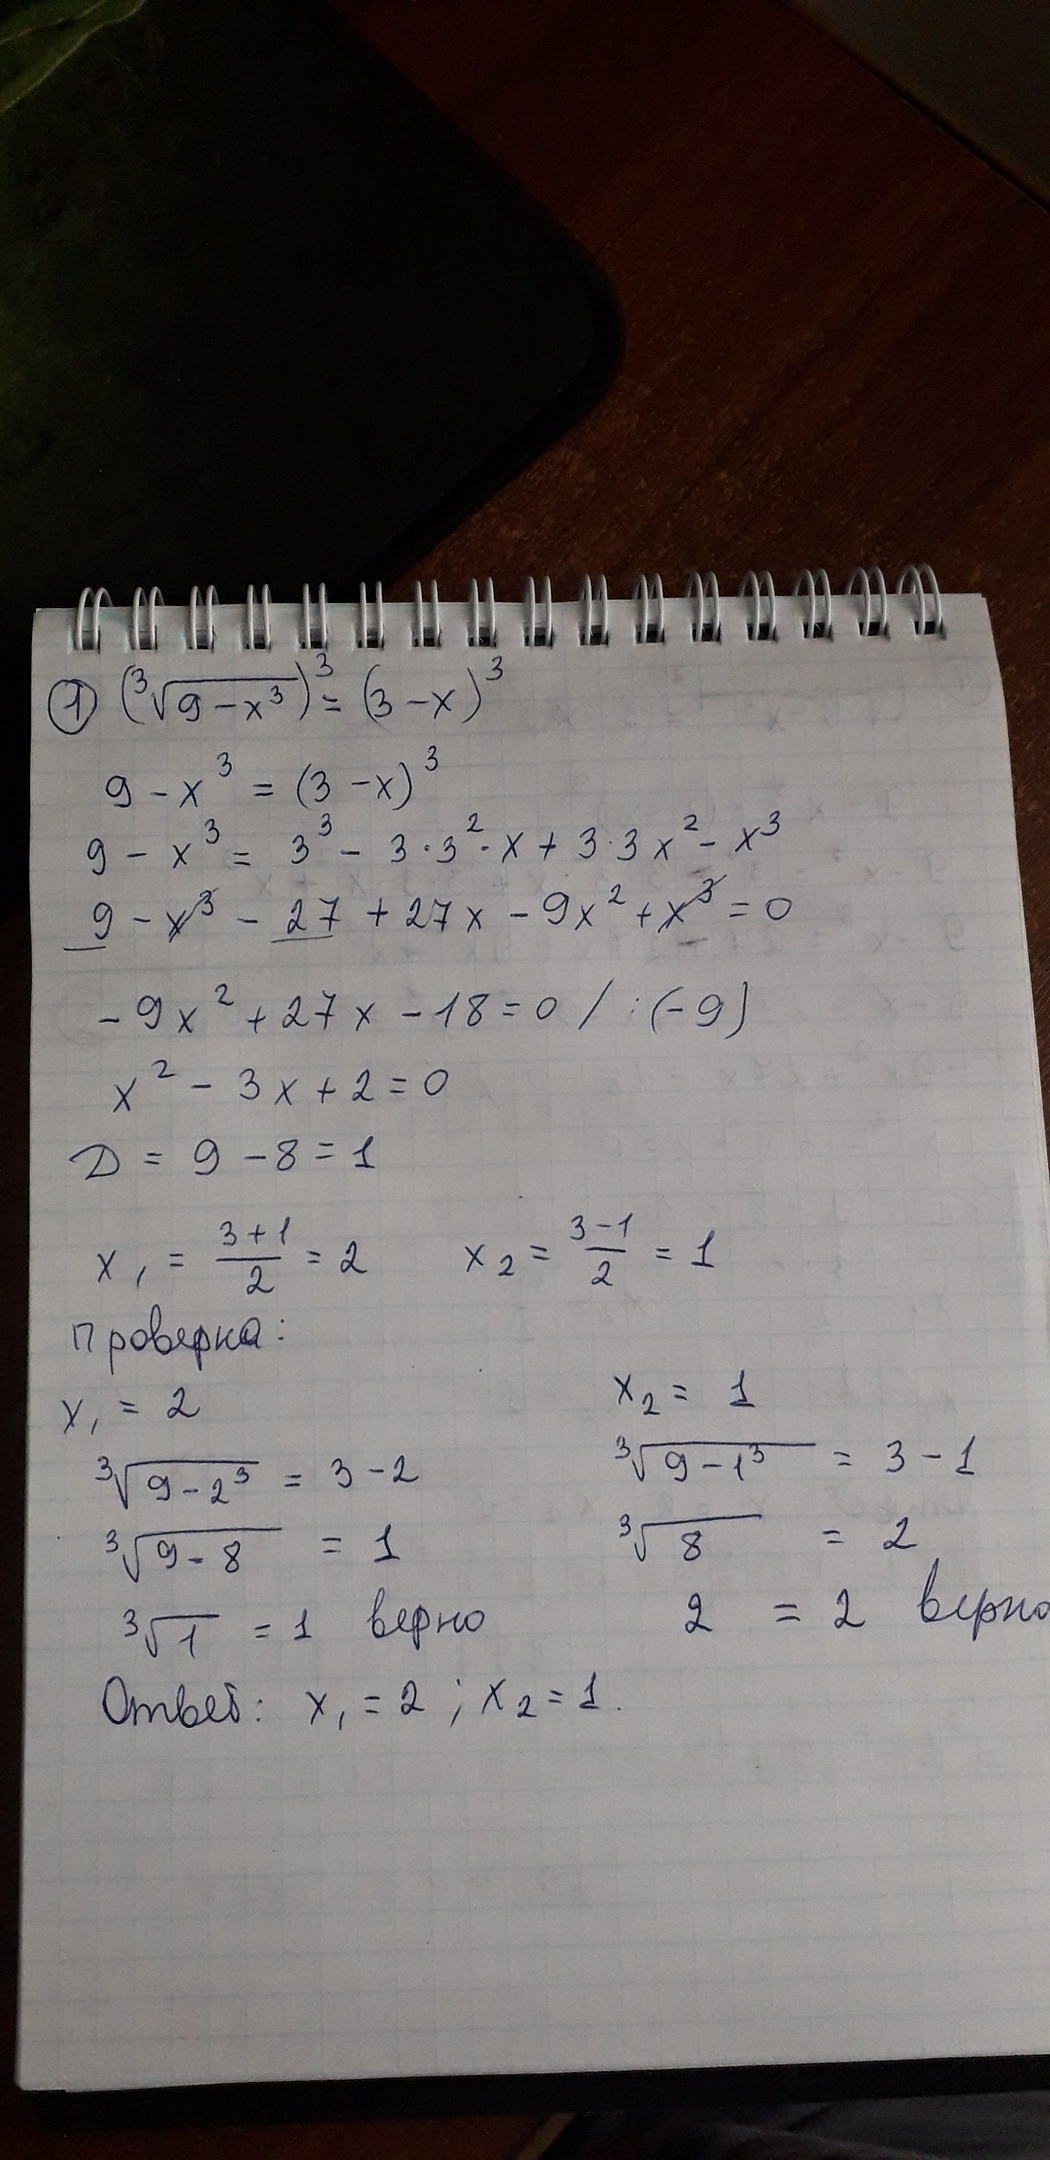 ① (∛(9-x³))³ = (3-x)³
9-x³ = (3-x)³
9-x³ = 3³ - 3·3²·x + 3·3x² - x³
9-x³ - 27 + 27x - 9x² + x³ = 0
-9x² + 27x - 18 = 0 / :(-9)
x² - 3x + 2 = 0
D = 9-8 = 1
x₁ = (3+1)/2 = 2 x₂ = (3-1)/2 = 1
Проверка:
x₁ = 2 x₂ = 1
∛(9-2³) = 3-2 ∛(9-1³) = 3-1
∛(9-8) = 1 ∛8 = 2
∛1 = 1 верно 2 = 2 верно
Ответ: x₁ = 2 ; x₂ = 1.